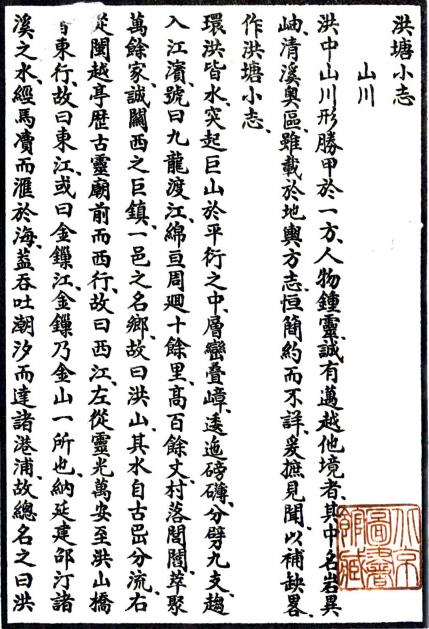 洪塘小志
山川
洪中山川形勝甲於一方、人物鍾靈、誠有邁越他境者、其中名岩異
岫、清溪奧區、雖載於地輿方志、恒簡約而不詳、爰摭見聞、以補缺畧、
作洪塘小志、
環洪皆水、突起巨山於平衍之中、層巒叠嶂、逶迤磅礴、分劈九支、趨
入江濱、號曰九龍渡江、綿亘周迴十餘里、高百餘丈、村落閭閻萃聚
萬餘家、誠闗西之巨鎮、一邑之名鄉、故曰洪山、其水自古嵒分流、右
從閩越亭歷古靈廟前而西行、故曰西江、左從靈光萬安至洪山橋
東行、故曰東江、或曰金鏁江、金鏁乃金山一所也、納延建邵汀諸
溪之水、經馬瀆而滙於海、葢吞吐潮汐而達諸港浦、故總名之曰洪